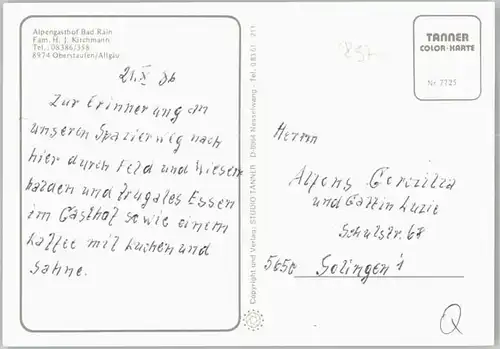 Alpengasthof Bad Rain
Fam. H. J. Kirchmann
Tel.: 08386/358
8974 Oberstaufen/Allgäu
21. X 86
Zur Erinnerung an
unseren Spazierweg nach
hier durch Feld und Wiesen
halden und frugales Essen
im Gasthof sowie einem
Kaffee mit Kuchen und
Sahne.
Copyright und Verlag: STUDIO TANNER D-8964 Nesselwang - Tel. 08361 / 211
TANNER
COLOR-KARTE
Nr 7725
Herrn
Alfons
und Gattin Luzie
Schulstr. 68
5650 Solingen 1
Q